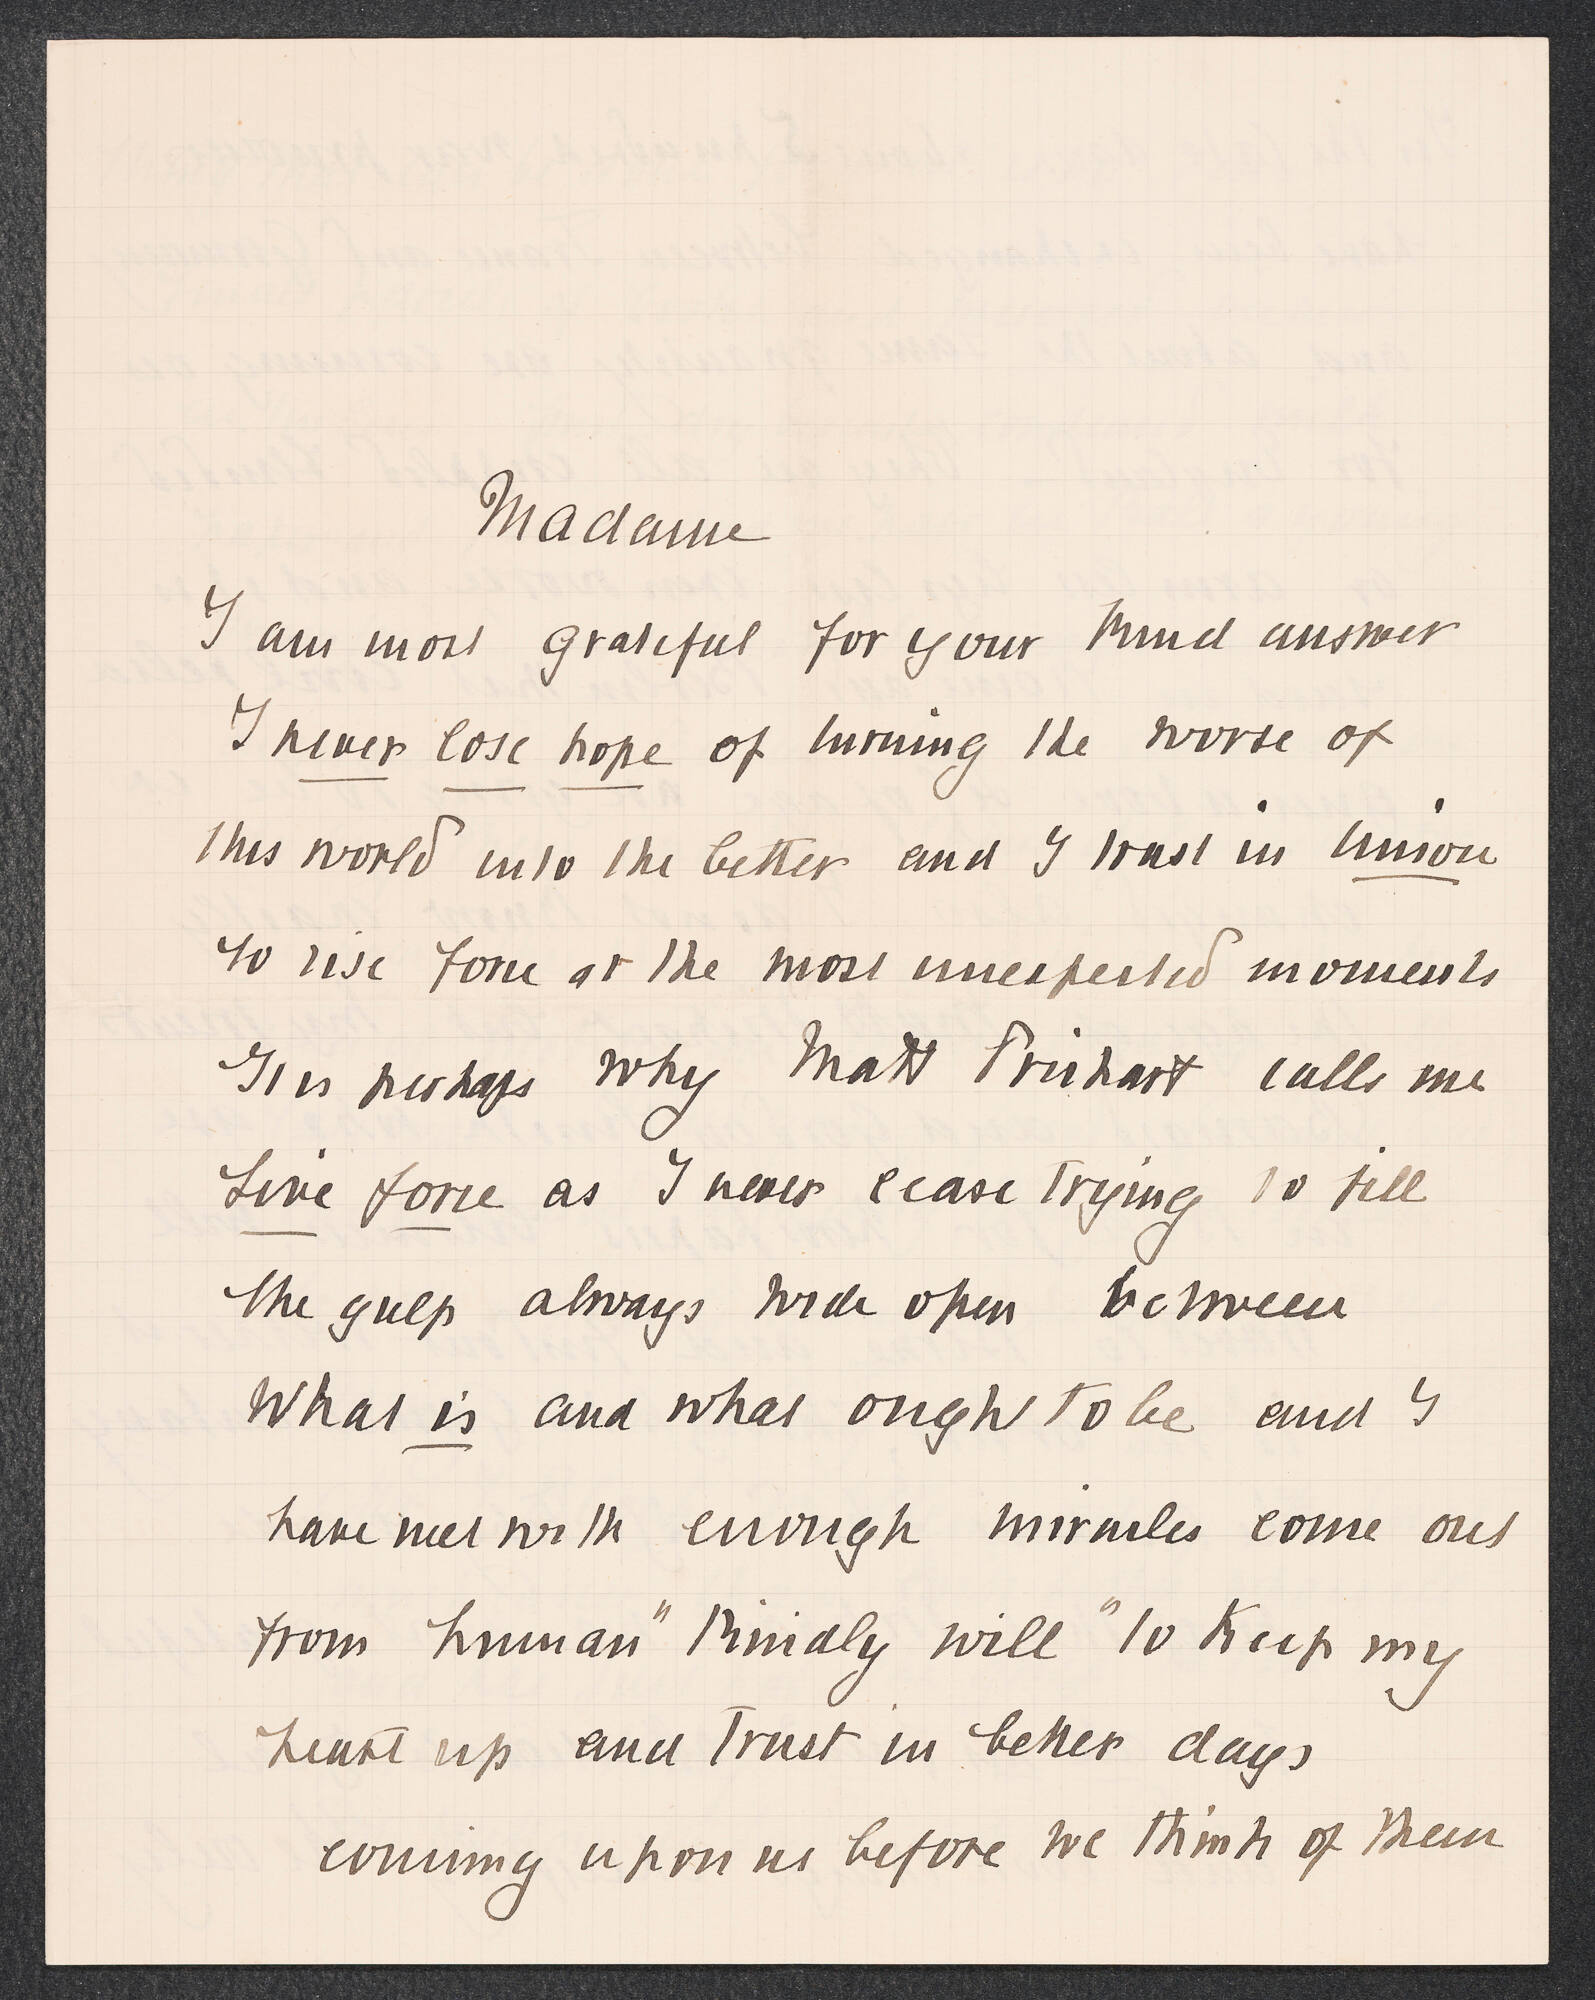 Madame
I am most grateful for your kind answer
I never lose hope of turning the worse of
this world into the better and I trust in Union
to rise forie at the most unexpected moments
It is perhaps why Matt Prichart calls me
Live forie as I never cease trying to fill
the gulp always wide open between
What is and what ought to be and I
have met with enough miracles come out
from human "Kindly will" to Keep my
heart up and trust in better days
coming upon us before we think of them